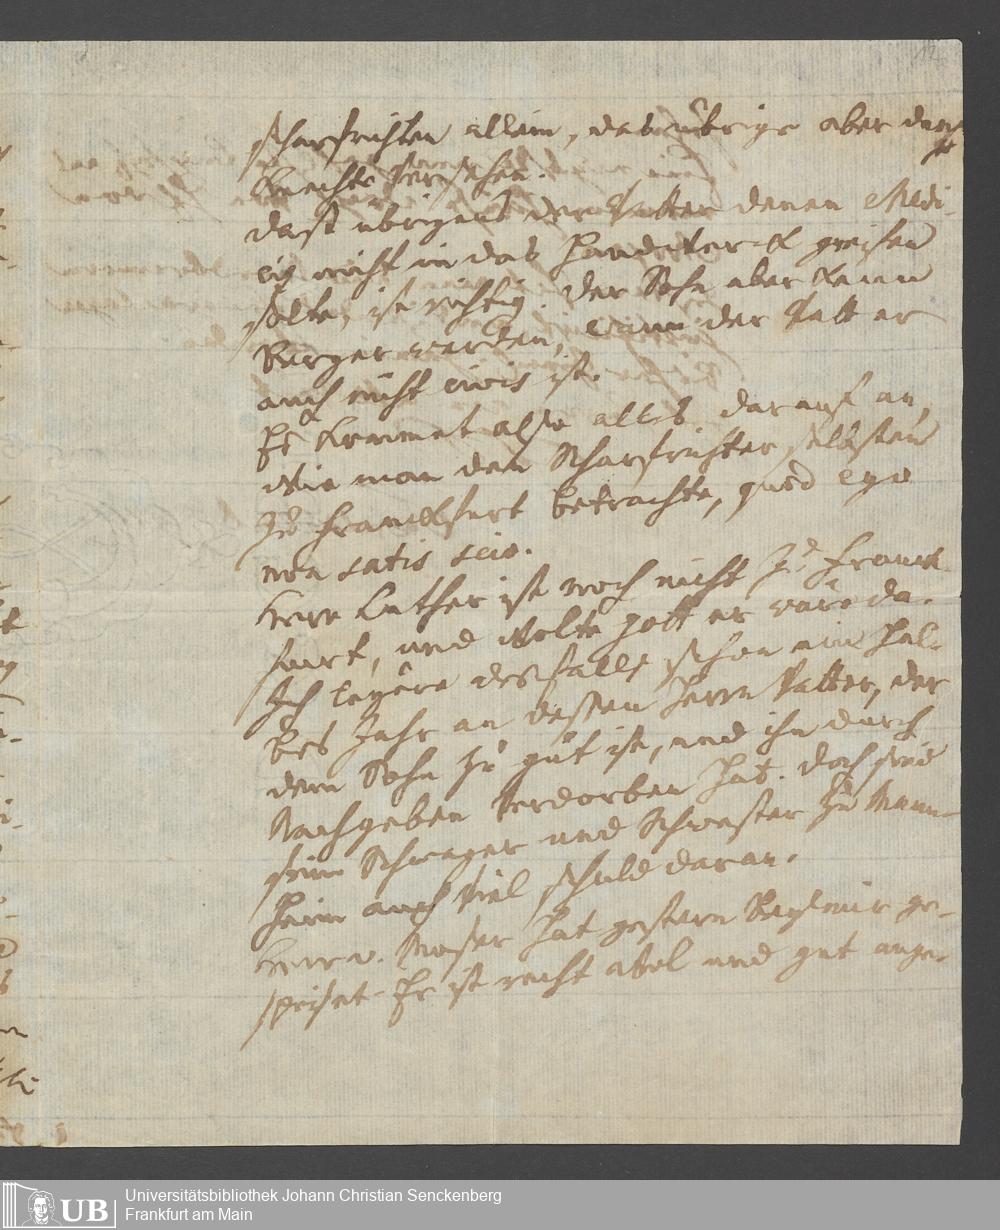 14
scharfrichten allein, das übrige aber durch
Knechte versehen.
dass übrigens der Vatter denen Medi-
cis nicht in das Handwerck greifen
solte, ist richtig. der Sohn aber kann
Burger werden, wann der Vatter
auch nicht civis ist.
Es kommet also alles darauf an,
wie man den Scharfrichter selbsten
zu Franckfurt betrachte, quod ego
non satis scio.
Herr Luther ist noch nicht zu Franck-
furt, und wolte gott er wäre da.
Ich desfalls schon ein hal-
bes Jahr an dessen Herrn Vatter, der
dem Sohn zu gut ist, und ihn durch
Nachgeben verdorben hat. doch sind
seine Schwager und Schwester zu Mann-
heim auch viel schuld daran.
Herr v. Moser hat gestern ge-
speiset. Er ist recht wol und gut
Universitätsbibliothek Johann Christian Senckenberg
Frankfurt am Main
UB